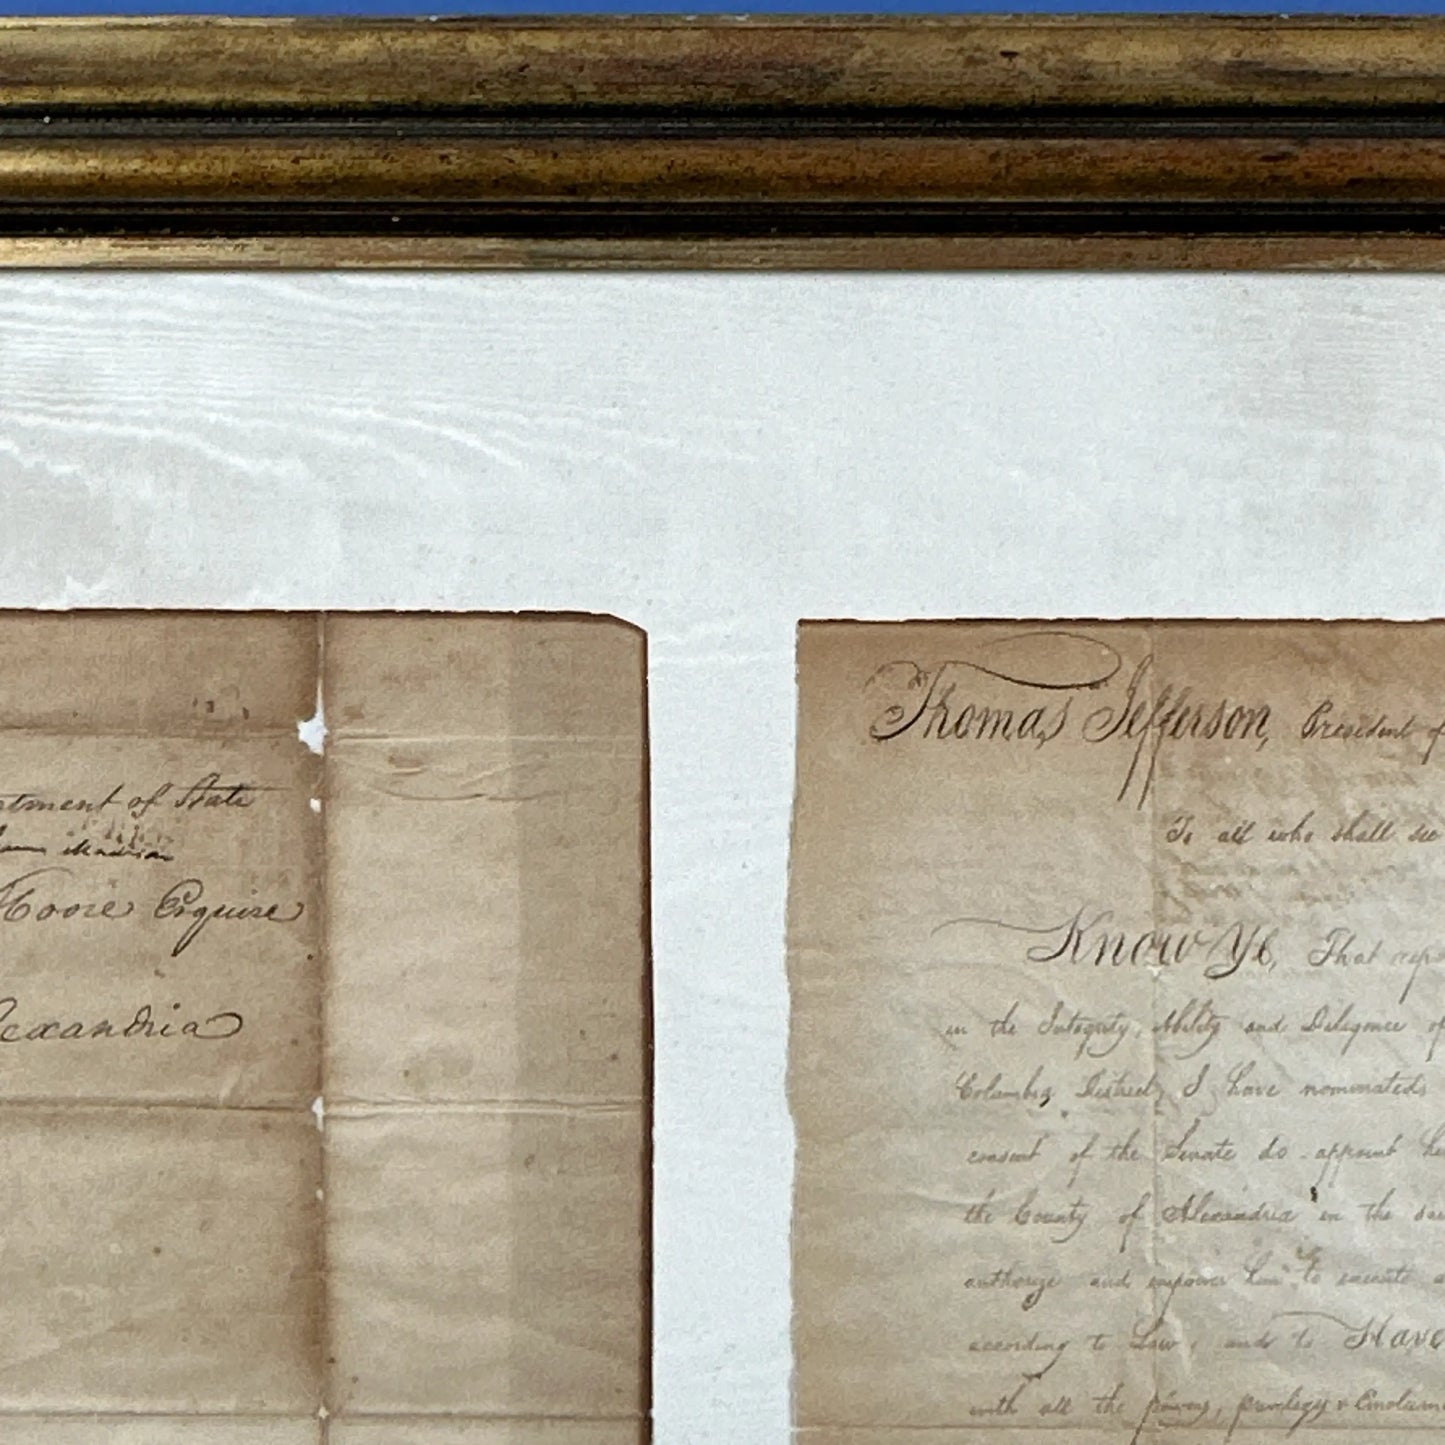 tment of State
Madison
Moore Esquire
lexandria
Thomas Jefferson, President of
To all who shall see
Know Ye, That repo
in the Integrity, Ability and Diligence of
Columbia District, I have nominated,
consent of the Senate do appoint him
the County of Alexandria in the sai
authorize and empower him to execute a
according to Law; and to Have
with all the powers, privileges & Emolume